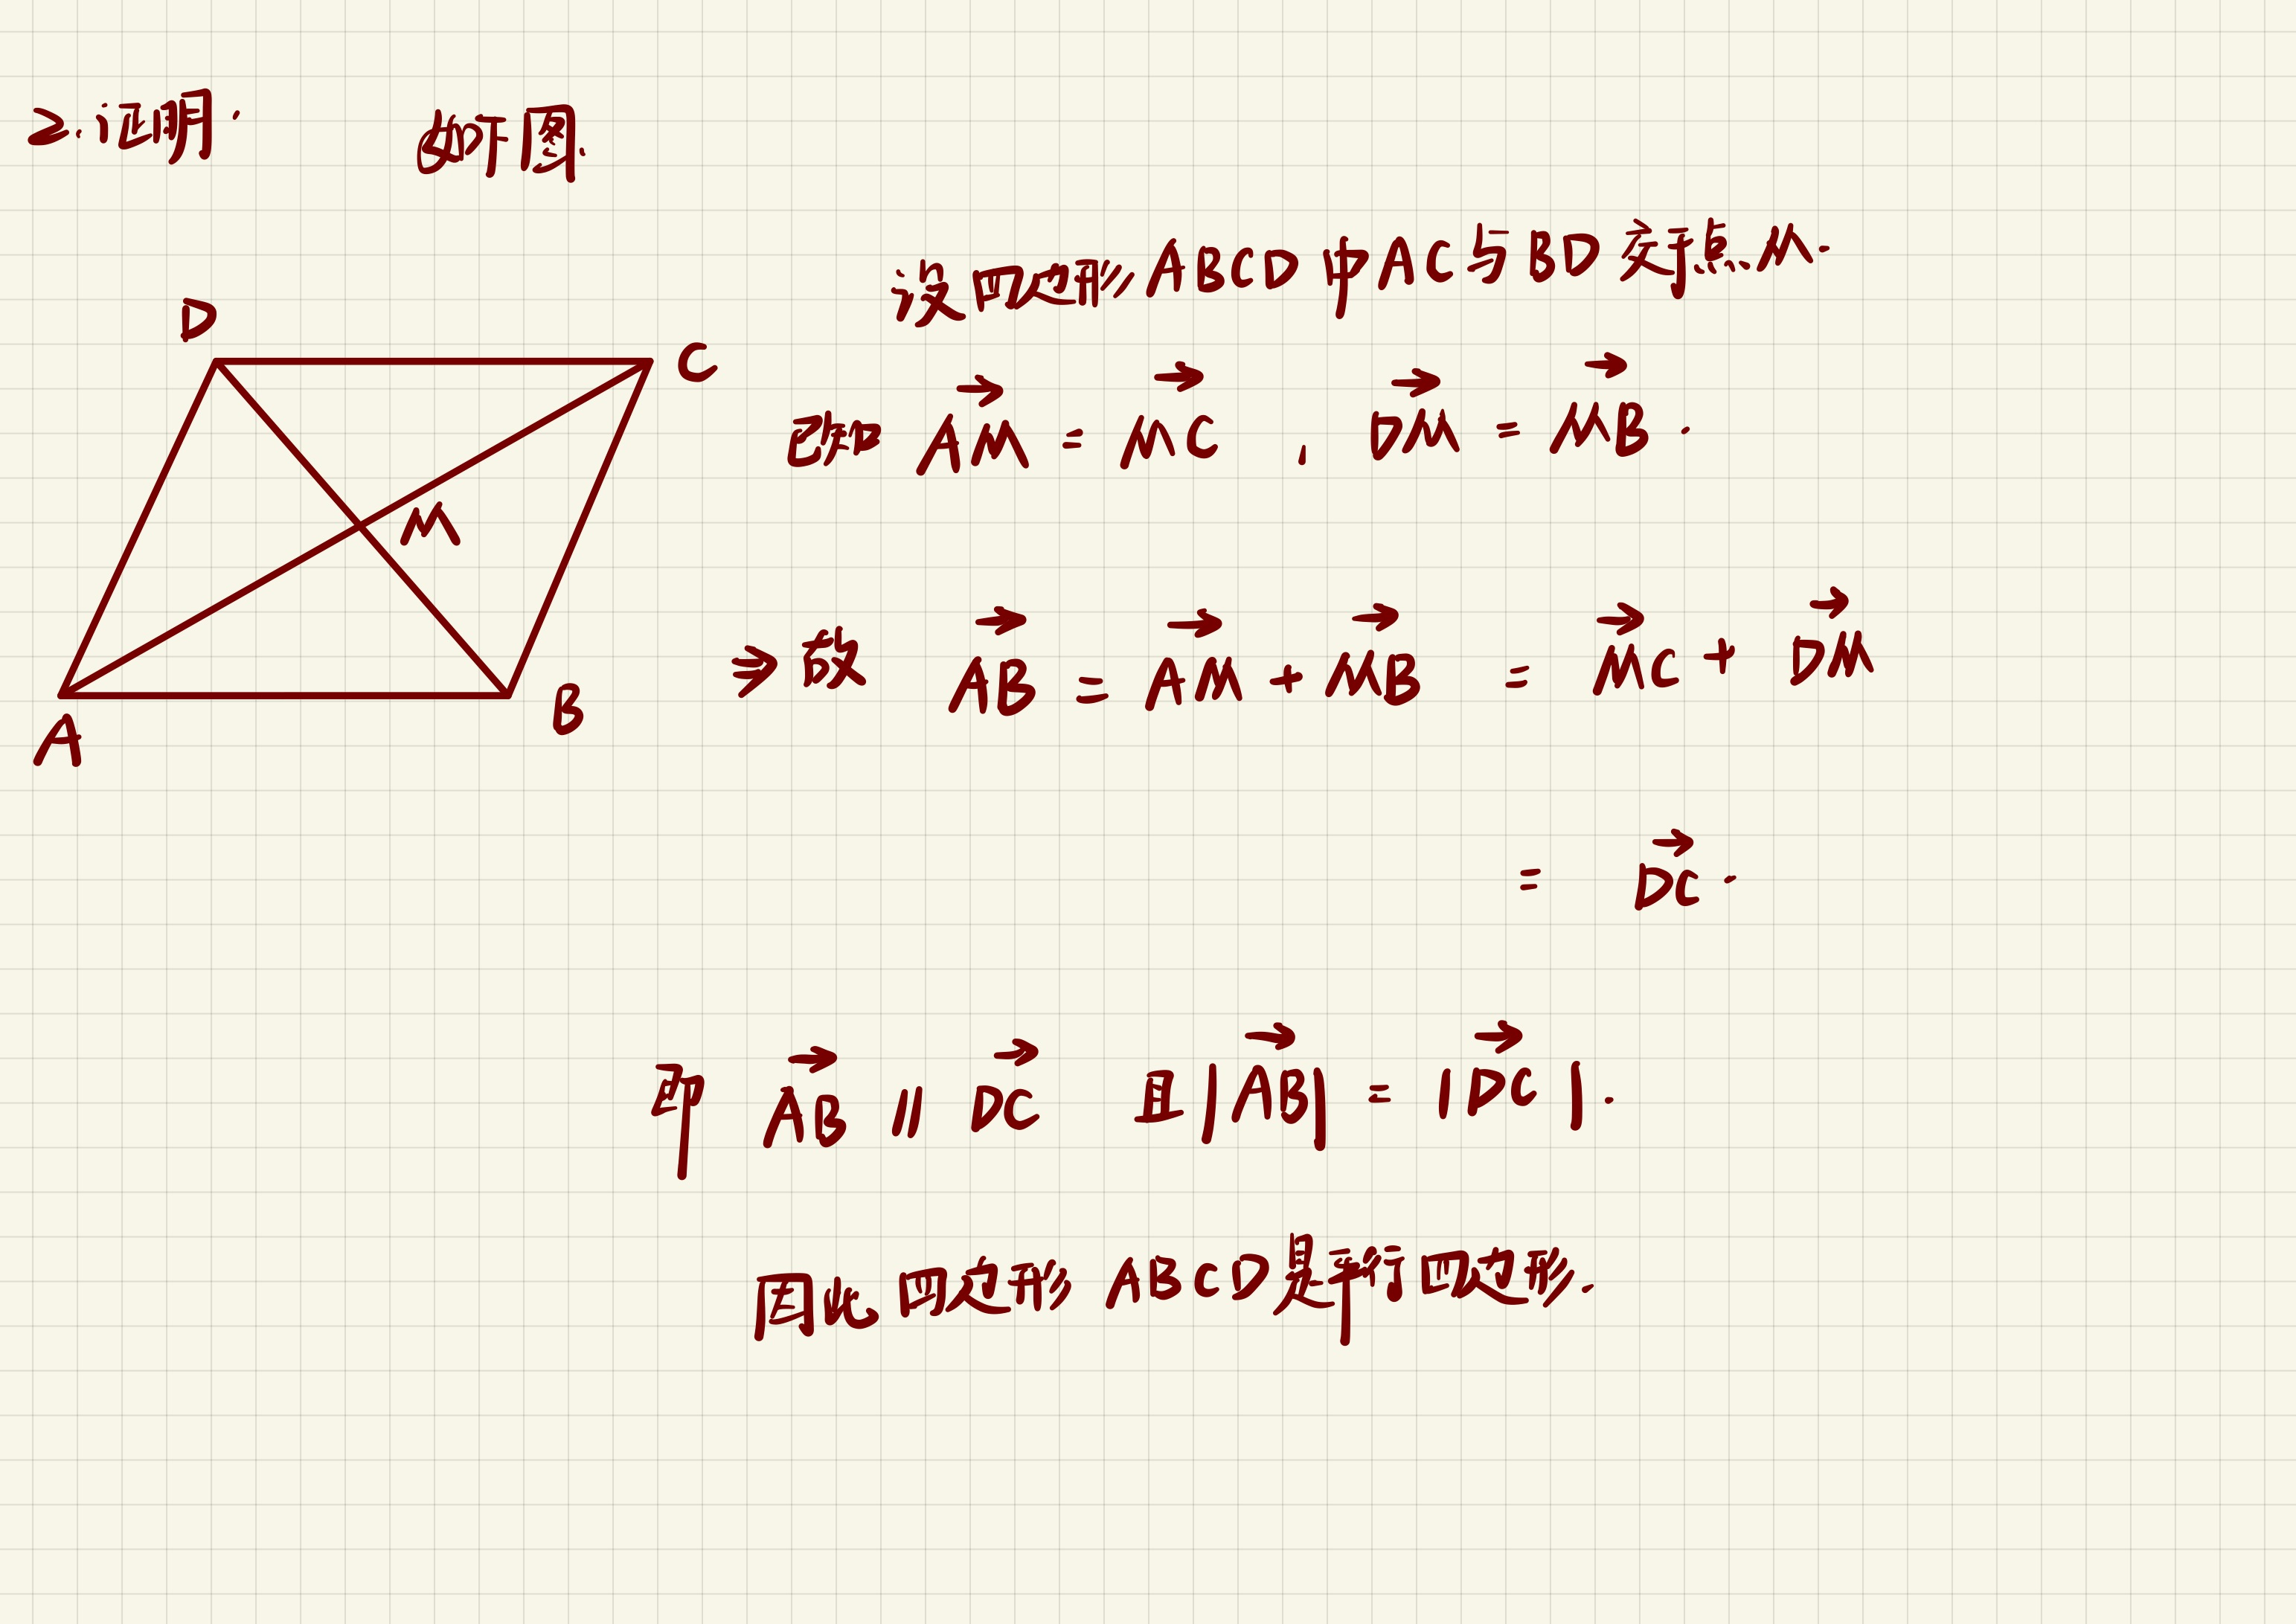 2.证明. 如下图.
设四边形ABCD中AC与BD交于点M.
D
C
已知 $\overrightarrow{AM}=\overrightarrow{MC}$, $\overrightarrow{DM}=\overrightarrow{MB}$.
M
⇒故 $\overrightarrow{AB}=\overrightarrow{AM}+\overrightarrow{MB}=\overrightarrow{MC}+\overrightarrow{DM}$
A
B
$=\overrightarrow{DC}$.
即 $\overrightarrow{AB}\parallel\overrightarrow{DC}$ 且$|\overrightarrow{AB}|=|\overrightarrow{DC}|$.
因此四边形ABCD是平行四边形.